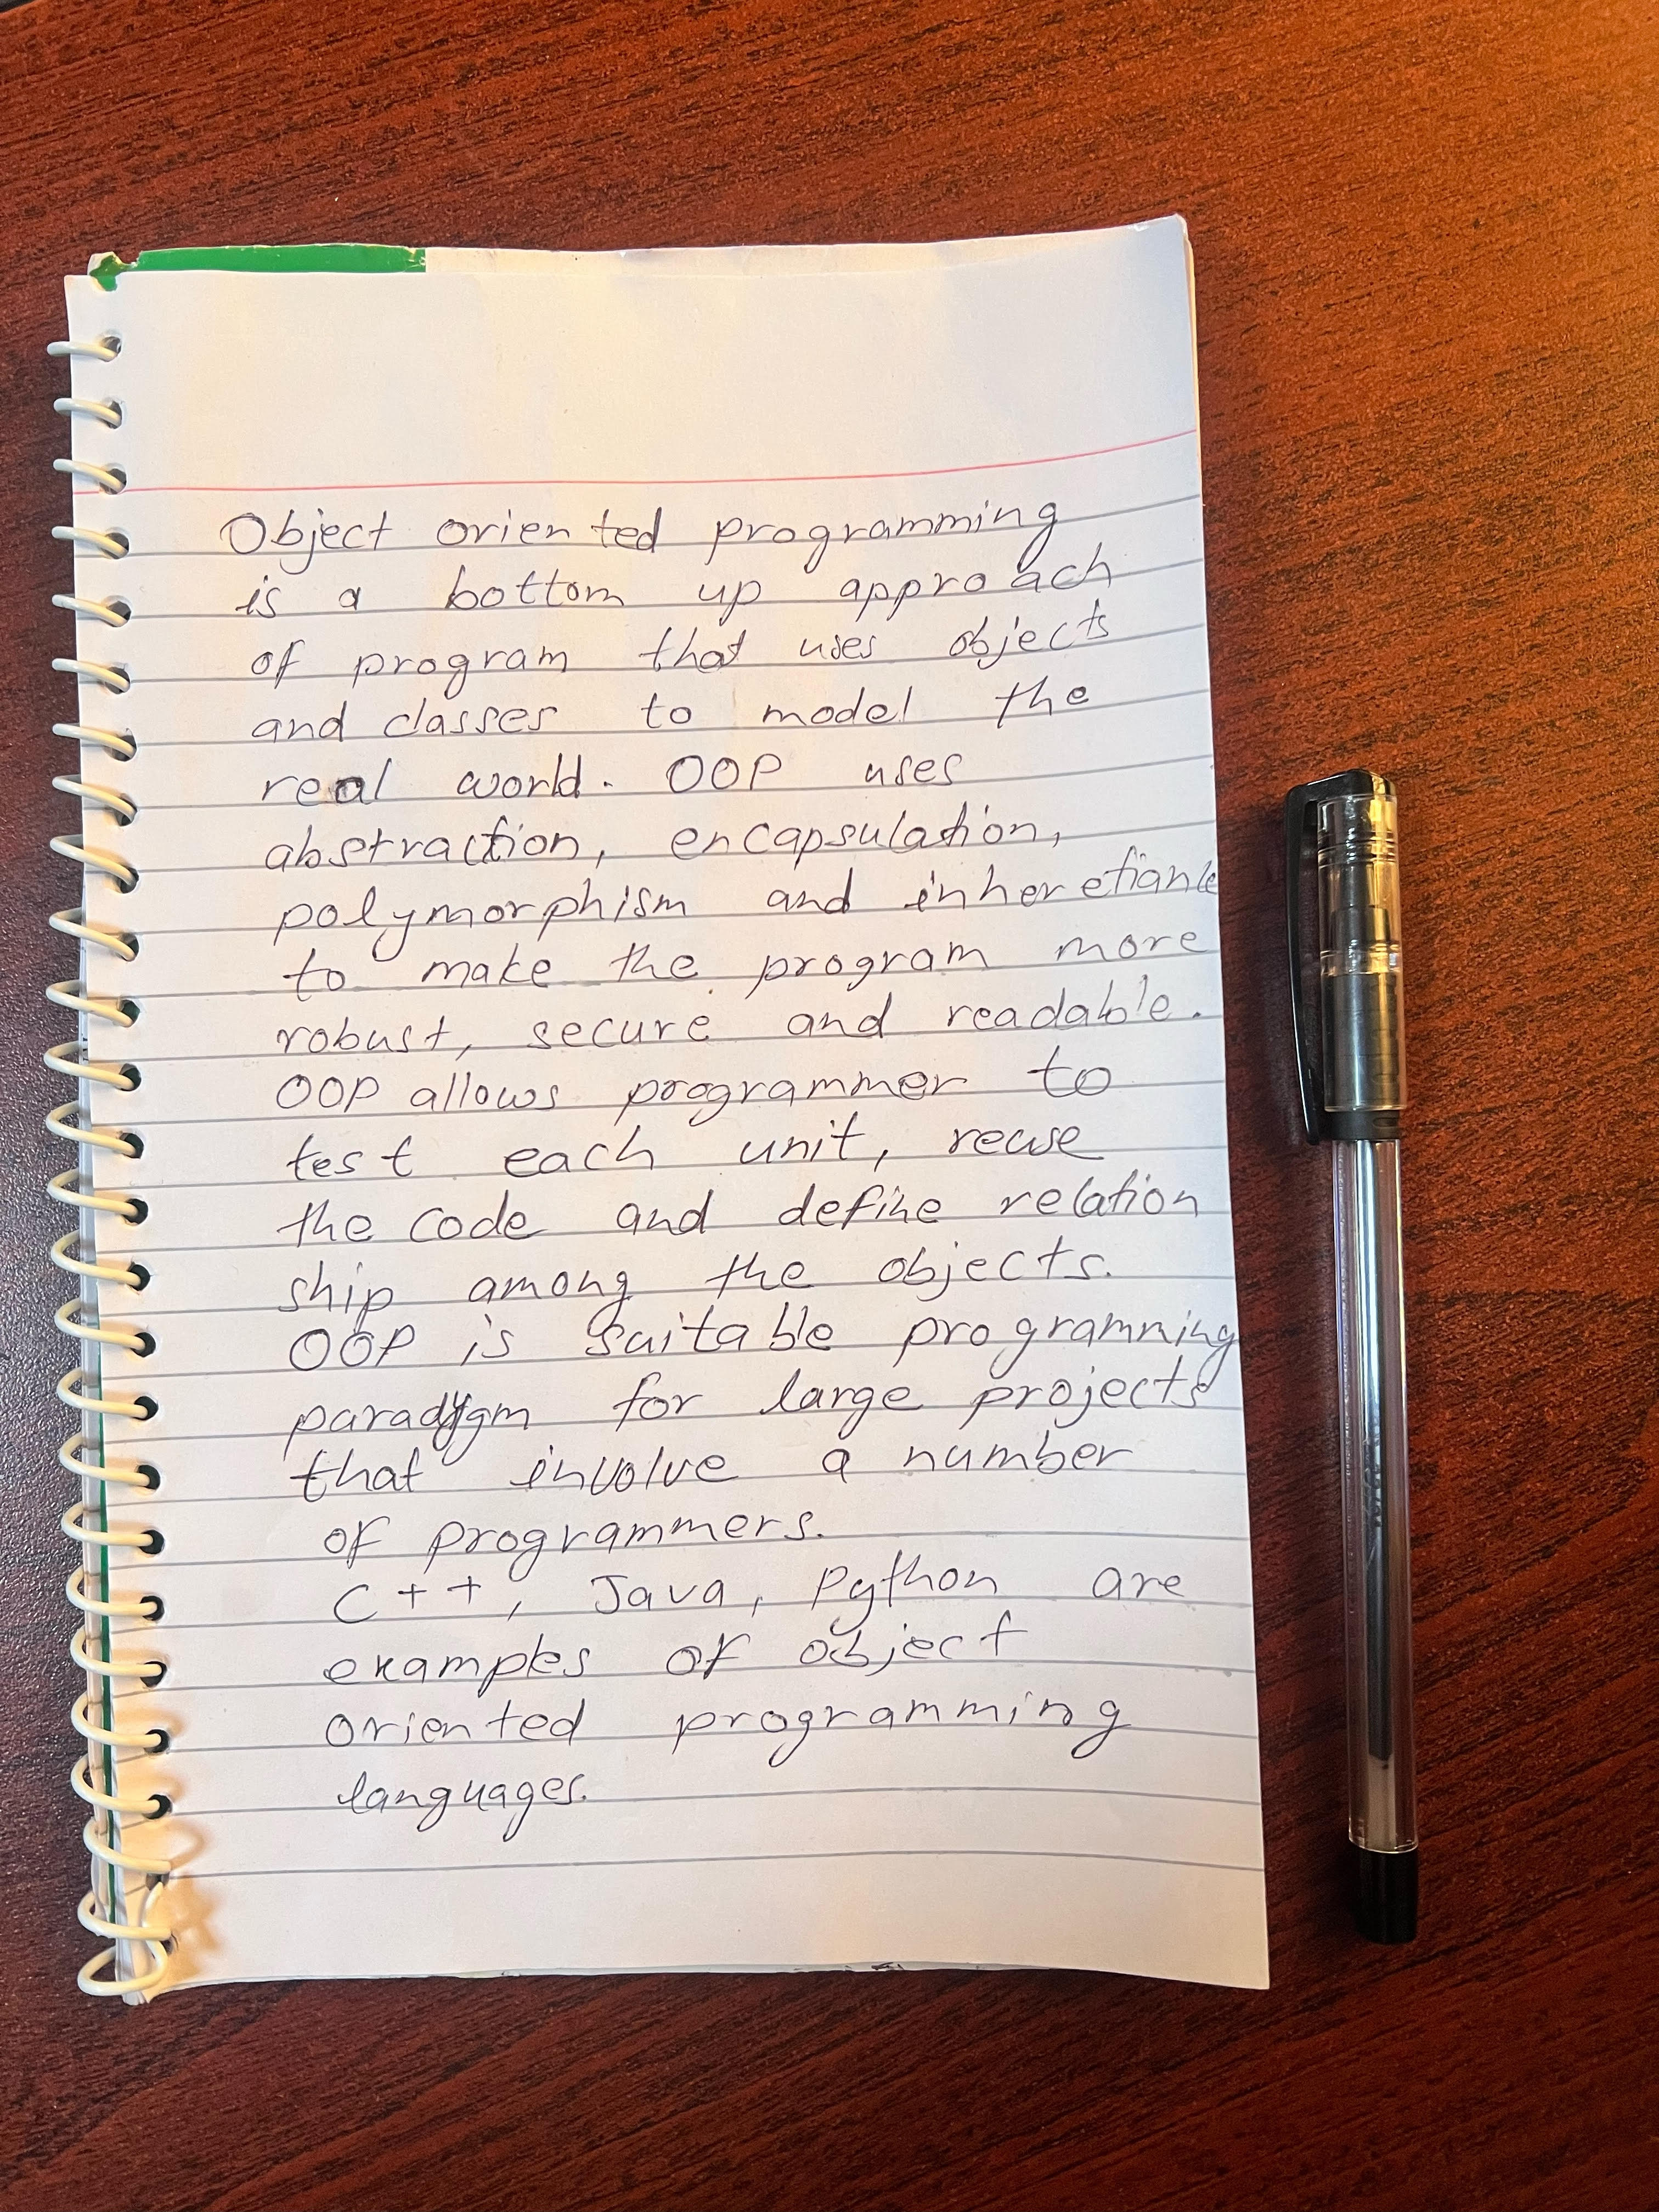 Object oriented programming
is a bottom up approach
of program that uses objects
and classes to model the
real world. OOP uses
abstraction, encapsulation,
polymorphism and inheretiance
to make the program more
robust, secure and readable.
OOP allows programmer to
test each unit, reuse
the code and define relation
ship among the objects.
OOP is suitable programming
paradygm for large projects
that involve a number
of programmers.
C++, Java, Python are
examples of object
oriented programming
languages.